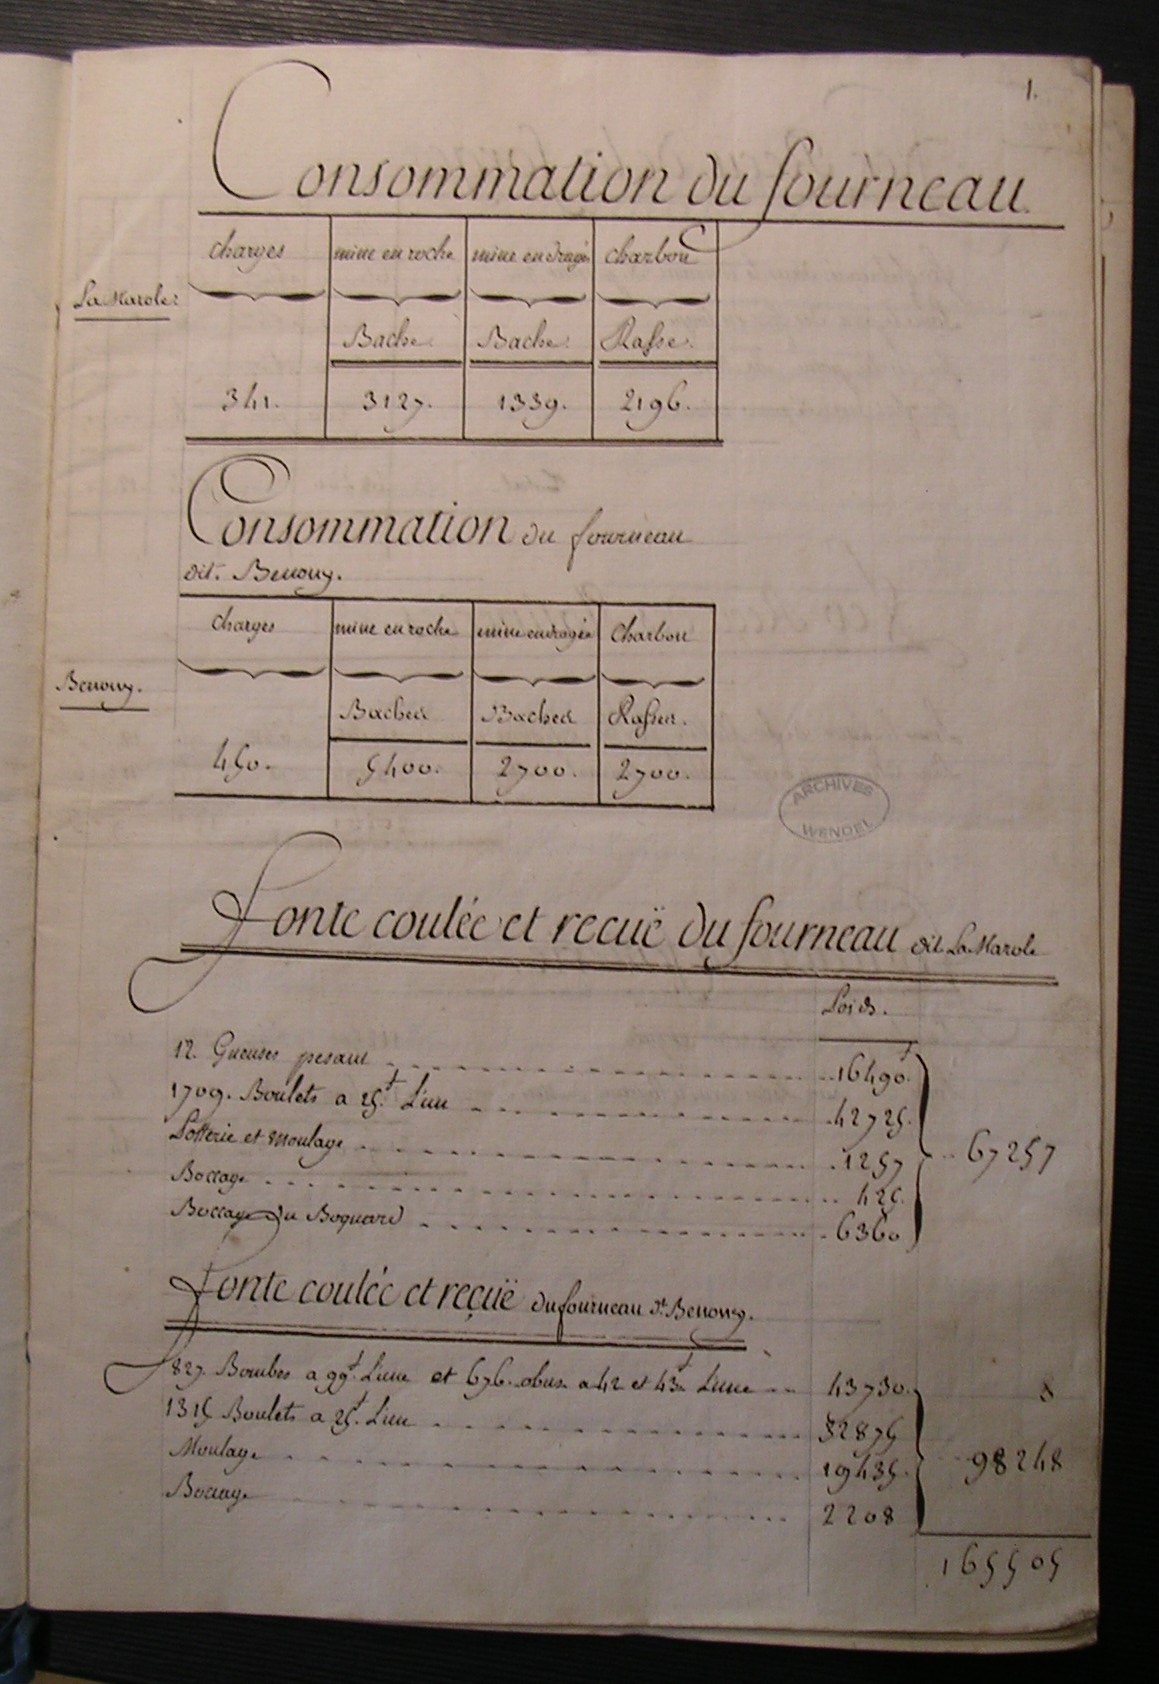 1.
Consommation du fourneau
La Marole:
charges mine en roche mine en dragée charbon
Bache. Bache. Rasse.
341. 3127. 1339. 2196.
Consommation du fourneau
dit. Benony.
Benony.
charges mine en roche mine en dragée Charbon
Baches Baches Rasses.
450. 5400. 2700. 2700.
ARCHIVES
WENDEL
Fonte coulée et recuë du fourneau dit La Marole
Poids.
12. Gueuses pesant 16490.
1709. Boulets a 25.t L'un 42725.
Potterie et Moulage 1257 67257
Boccage 425.
Boccage du Boquard 6360
Fonte coulée et reçuë du fourneau dt. Benony.
827. Bombes a 99t. L'une et 676. obus a 42 et 43t. L'une 43730. 8
1315 Boulets a 25t. L'un 32875
Moulage 19435. 98248
Boccage 2208
165505